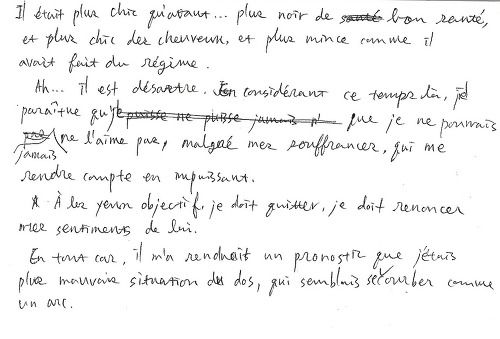 Il était plus chic qu'avant... plus noir de santé bon santé,
et plus chic des cheveux, et plus mince comme il
avait fait du régime.
Ah... il est désastre. En considérant ce temps là, je
paraître qu'je puisse ne puisse jamais n' que je ne pouvais
pas jamais ne l'aime pas, malgré mes souffrances, qui me
rendre compte en impuissant.
À les yeux objectif, je doit quitter, je doit renoncer
mes sentiments de lui.
En tout cas, il m'a rendrait un pronostic que j'étais
plus mauvaise situation du dos, qui semblais se courber comme
un arc.